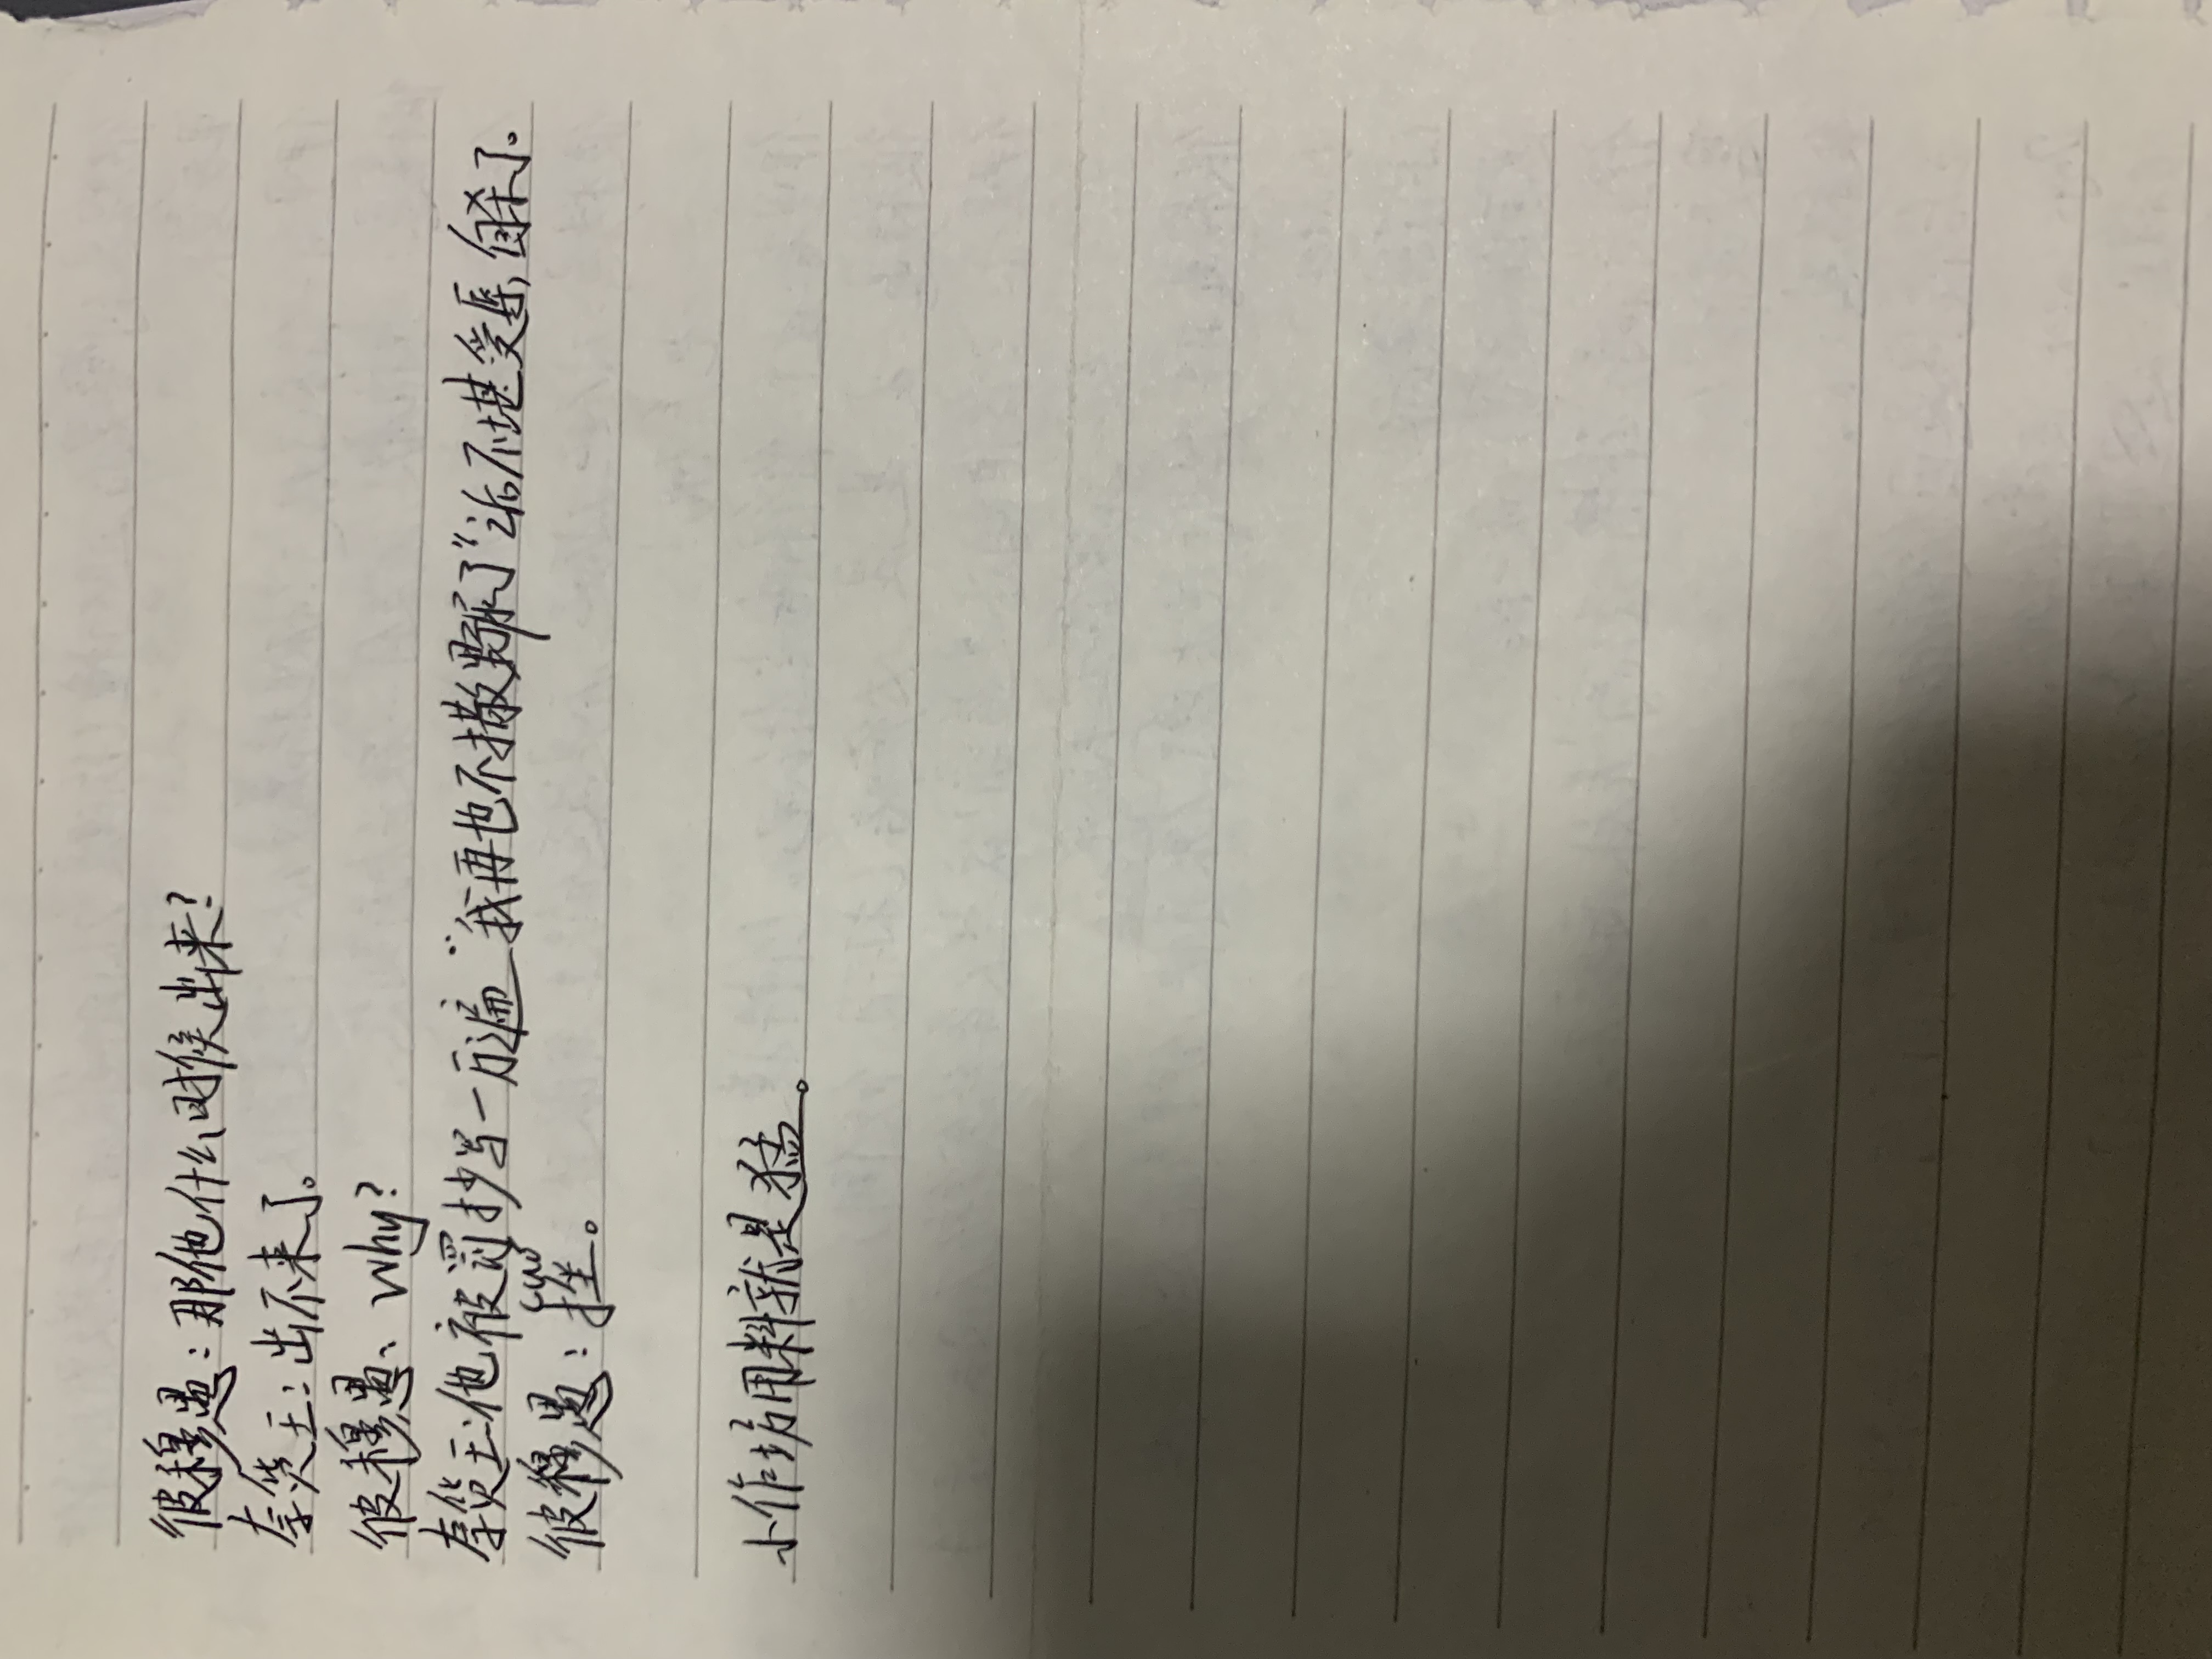 彼穆愚：那他什么时侯出来？
李货王：出不来了。
彼穆愚、why？
李货王：他被罚抄写一万遍“我再也不撒野尿了”之后不堪受辱，自杀了。
cuò
彼穆愚：挫。
小作坊用料就是猛。